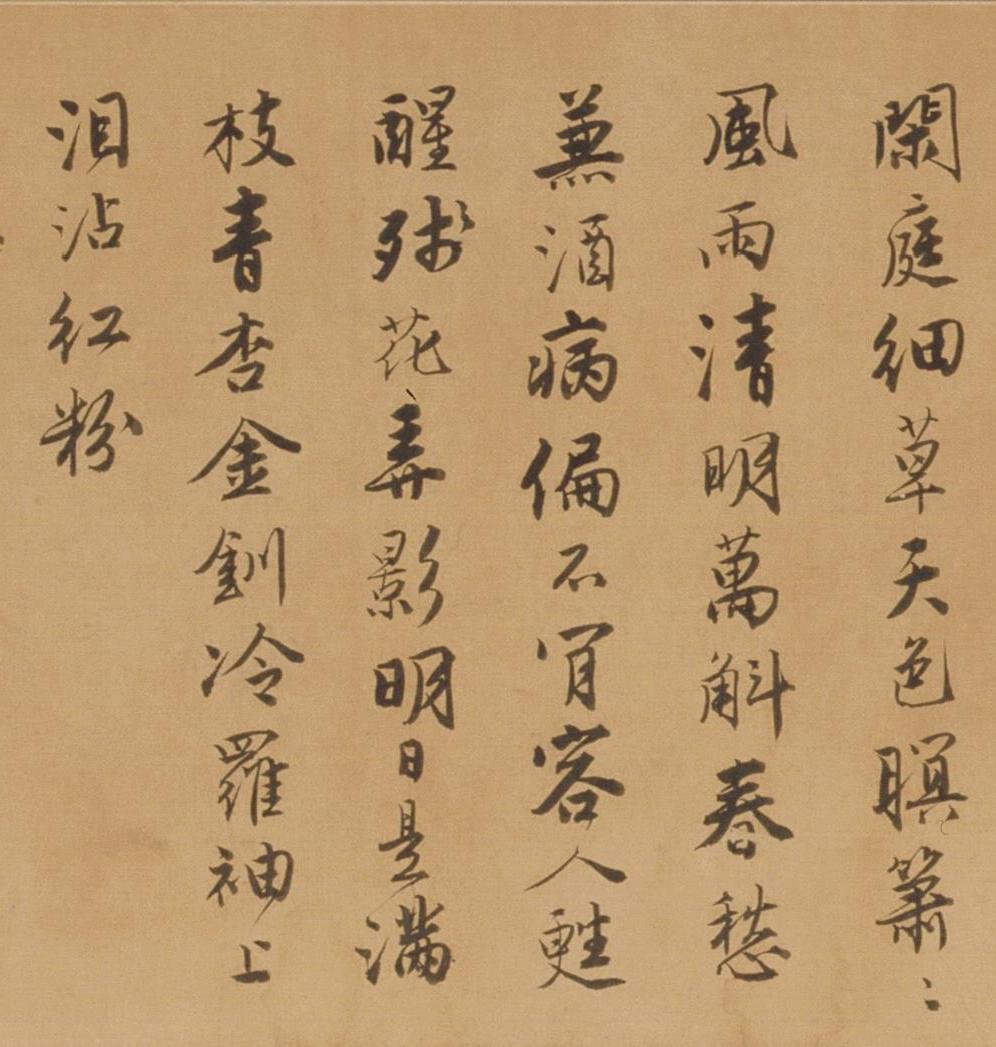 閑庭細草天色暝簫〻
風雨清明萬斛春愁
兼酒病偏不肯容人甦
醒殘花弄影明日是滿
枝青杏金釧冷羅袖上
淚沾紅粉